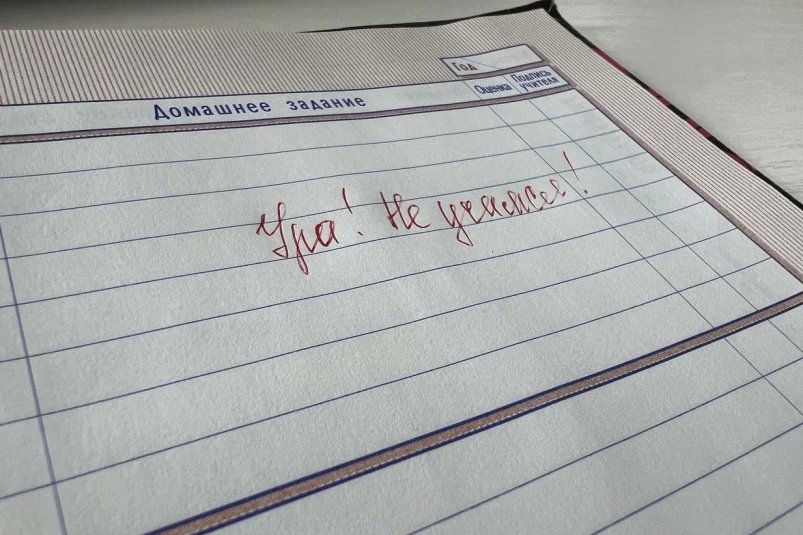 Год
Домашнее задание
Оценка
Подпись учителя
Ура! Не учимся!